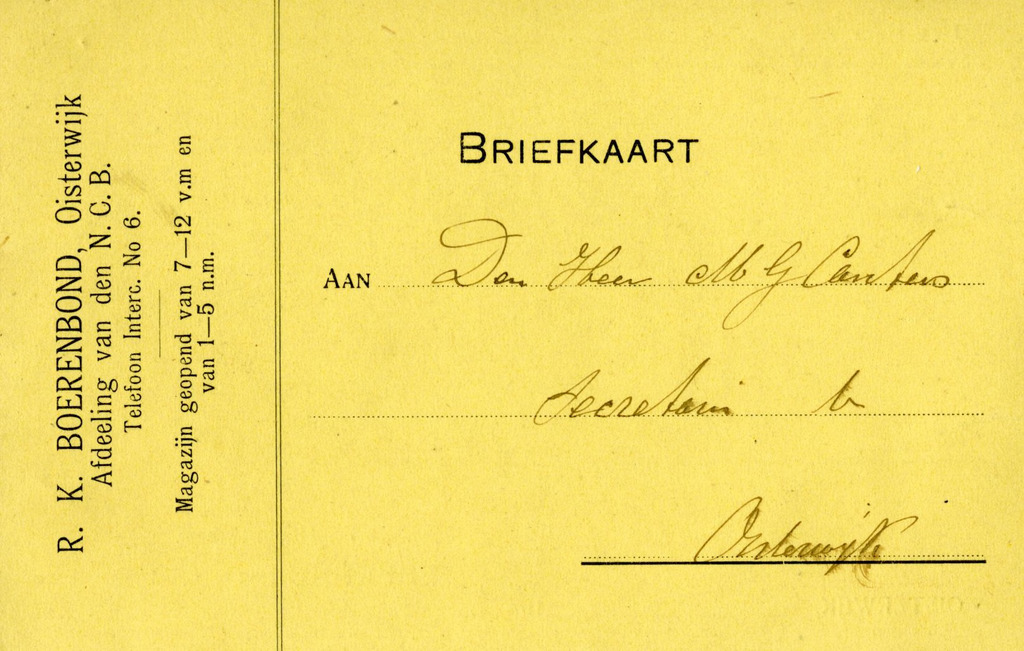 R. K. BOERENBOND, Oisterwijk
Afdeeling van den N. C. B.
Telefoon Interc. No 6.
Magazijn geopend van 7—12 v.m en
van 1—5 n.m.
BRIEFKAART
AAN Den Heer M G Canters
Secretaris b
Oisterwijk